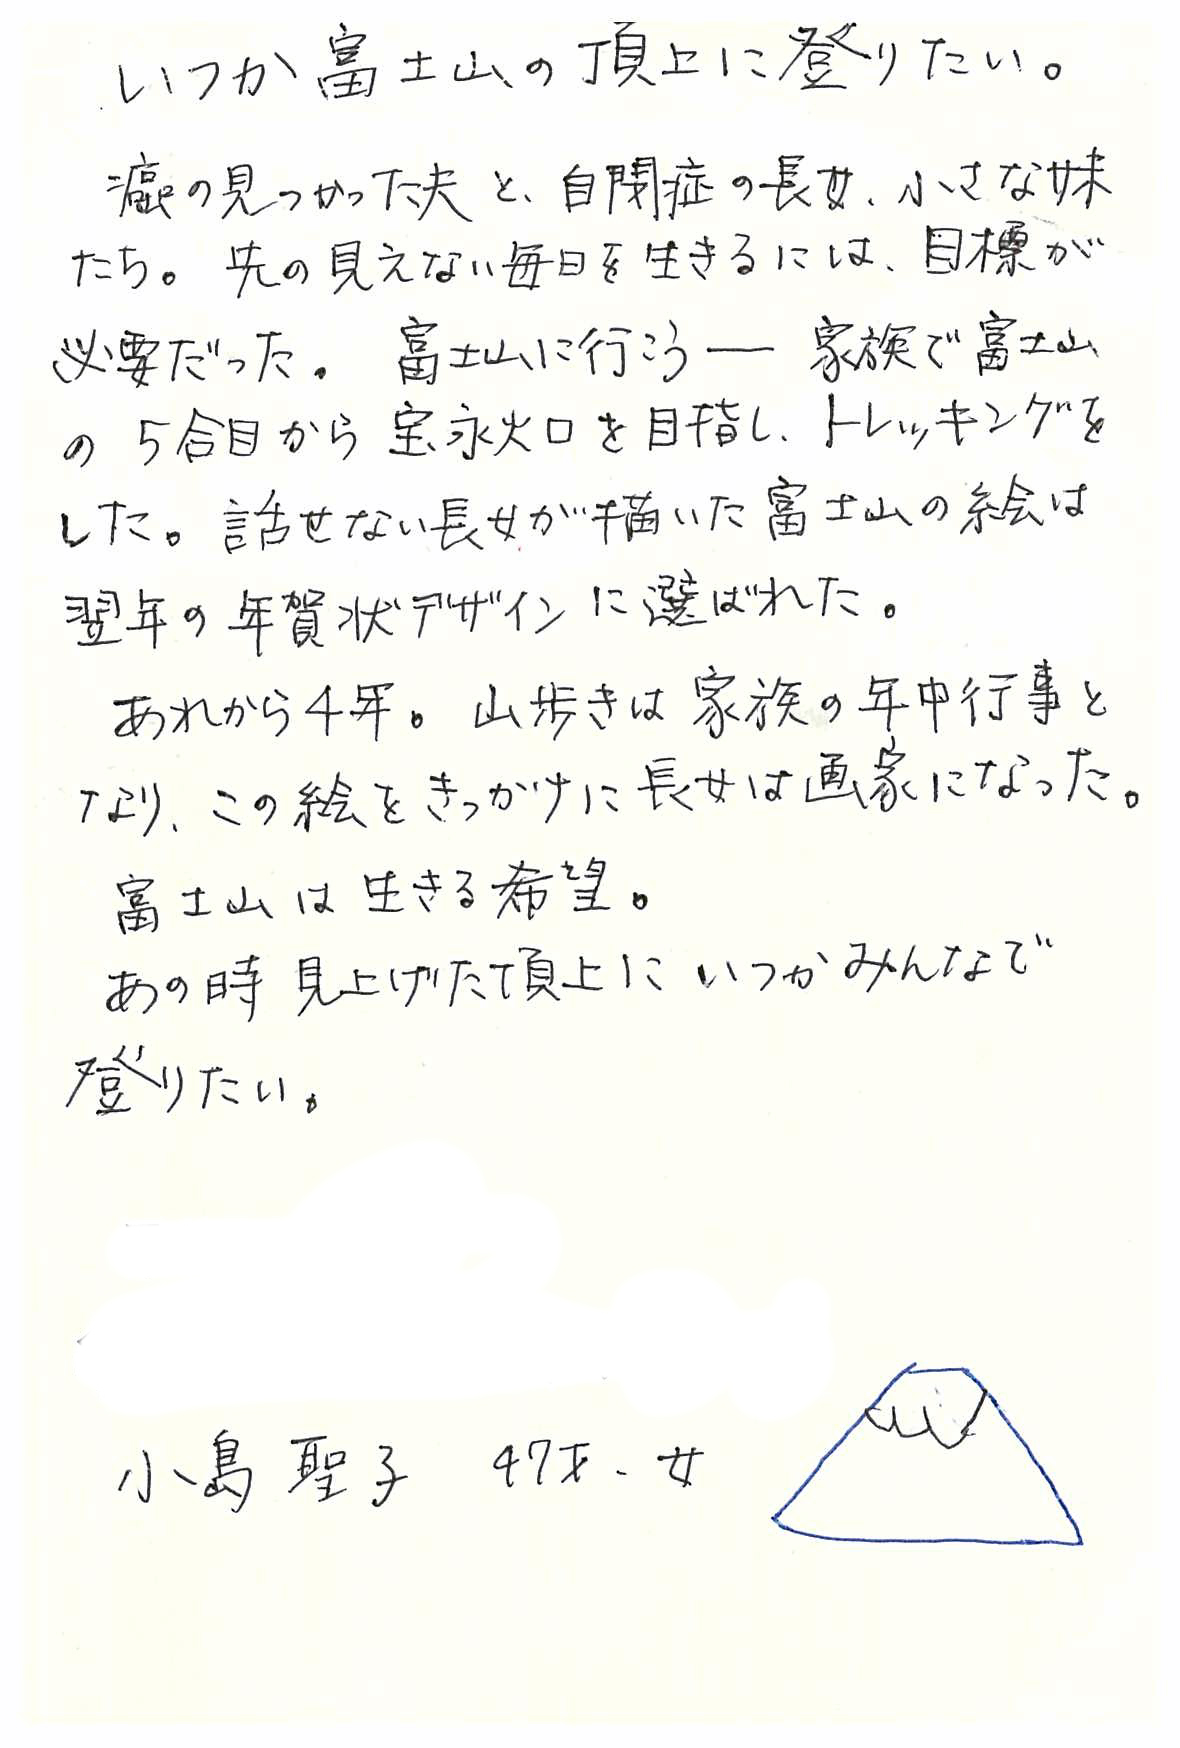 いつか富士山の頂上に登りたい。
癌の見つかった夫と、自閉症の長女、小さな妹
たち。先の見えない毎日を生きるには、目標が
必要だった。富士山に行こう― 家族で富士山
の5合目から宝永火口を目指し、トレッキングを
した。話せない長女が描いた富士山の絵は
翌年の年賀状デザインに選ばれた。
あれから4年。山歩きは家族の年中行事と
なり、この絵をきっかけに長女は画家になった。
富士山は生きる希望。
あの時見上げた頂上にいつかみんなで
登りたい。
小島聖子 47才、女